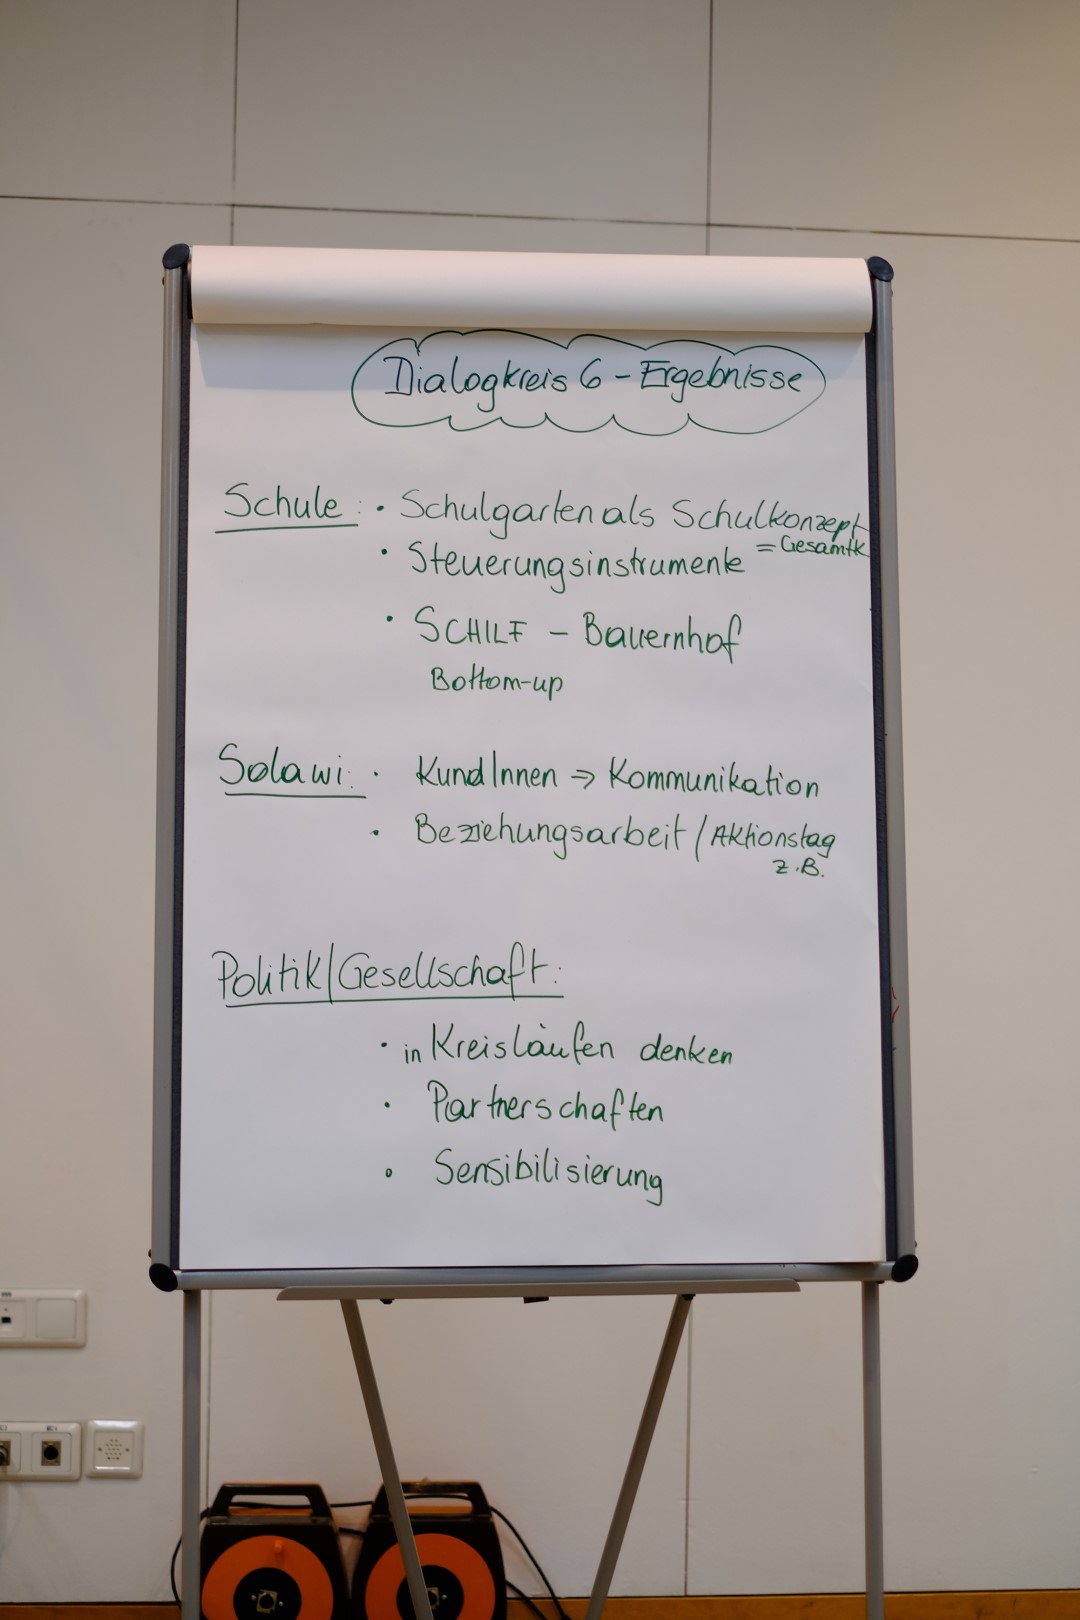 Dialogkreis 6 – Ergebnisse
Schule: • Schulgarten als Schulkonzept
= Gesamtk.
• Steuerungsinstrumente
• SCHILF – Bauernhof
Bottom-up
Solawi: • KundInnen ⇒ Kommunikation
• Beziehungsarbeit / Aktionstag
z.B.
Politik/Gesellschaft:
• in Kreisläufen denken
• Partnerschaften
• Sensibilisierung